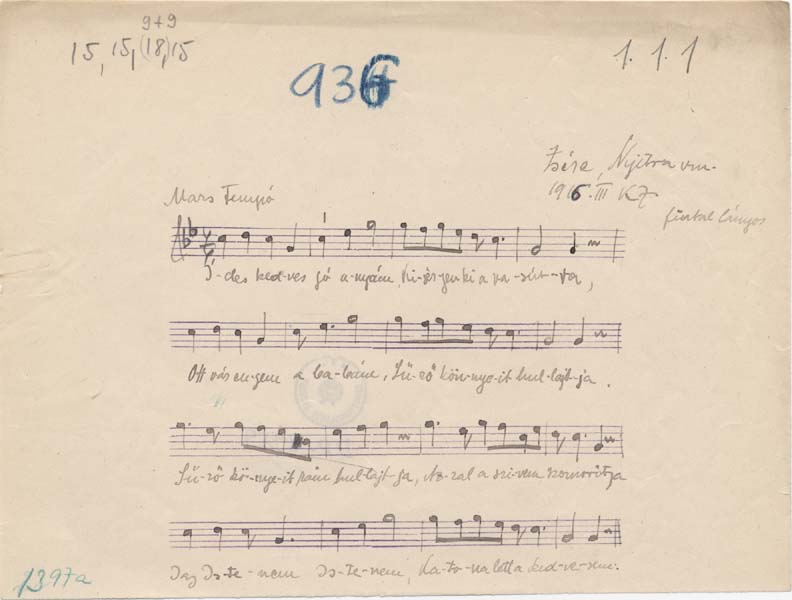 9+9
15, 15, (18,) 15
1. 1. 1
936
Zsére, Nyitra vm.
1916. III KZ
fiatal lányos
Mars tempó
I-des ked-ves jó a-nyám, Ki-jer-jen ki a va-sút-ra,
Ott vár en-gem a ba-bám, Sű-rő kön-nye-it hul-lajt-ja.
Sű-rő kö-nye-it rám hul-lajt-ja, Az-zal a szi-vem szomoritja
Jaj Is-te-nem Is-te-nem, Ka-to-na lett a ked-ve-sem.
1397a